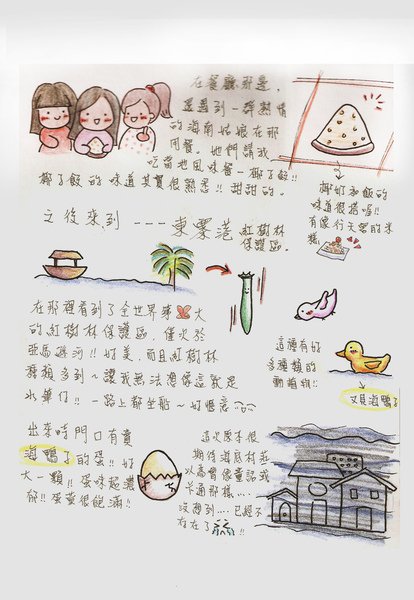 在餐廳那邊,
還遇到一群熱情
的海南姑娘在那
用餐。她們請我
吃當地風味餐—椰子飯!!
椰子飯的味道其實很熟悉!! 甜甜的。
椰虹和飯的
味道很搭唷!!
有像行天宮的米
糕
之後來到 ---- 東寨港 紅樹林
保護區。
在那裡看到了全世界第二大
的紅樹林保護區, 僅次於
亞馬遜河!! 好美, 而且紅樹林
種類多到~讓我無法想像這就是
水筆仔!! 一路上都坐船~好愜意
這裡有好
多種類的
動植物!!
尤其海鴨子
出來時門口有賣
海鴨子的蛋!! 好
大一顆!! 蛋味超濃
郁!! 蛋黃很飽滿!!
這次原本很
期待漁民村莊
以為會像童話或
卡通那樣....
沒想到.... 已經不
存在了 !!